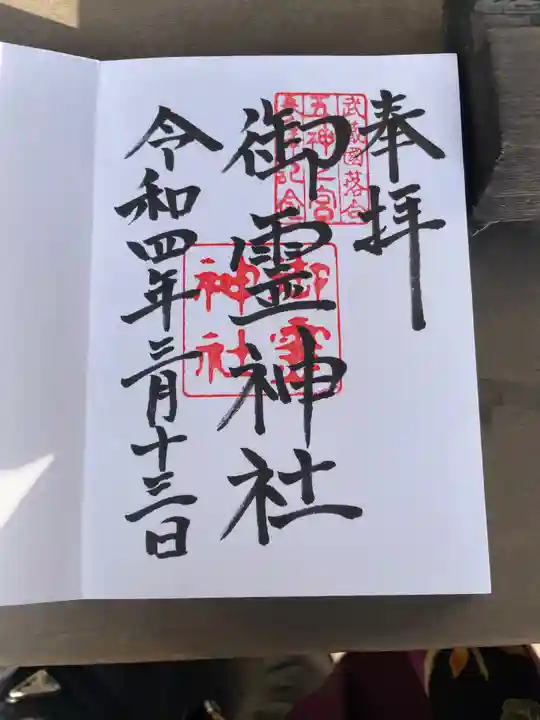 奉拝
武蔵國落合
五神之宮
奉拝記念
御霊神社
御霊
神社
令和四年三月十三日